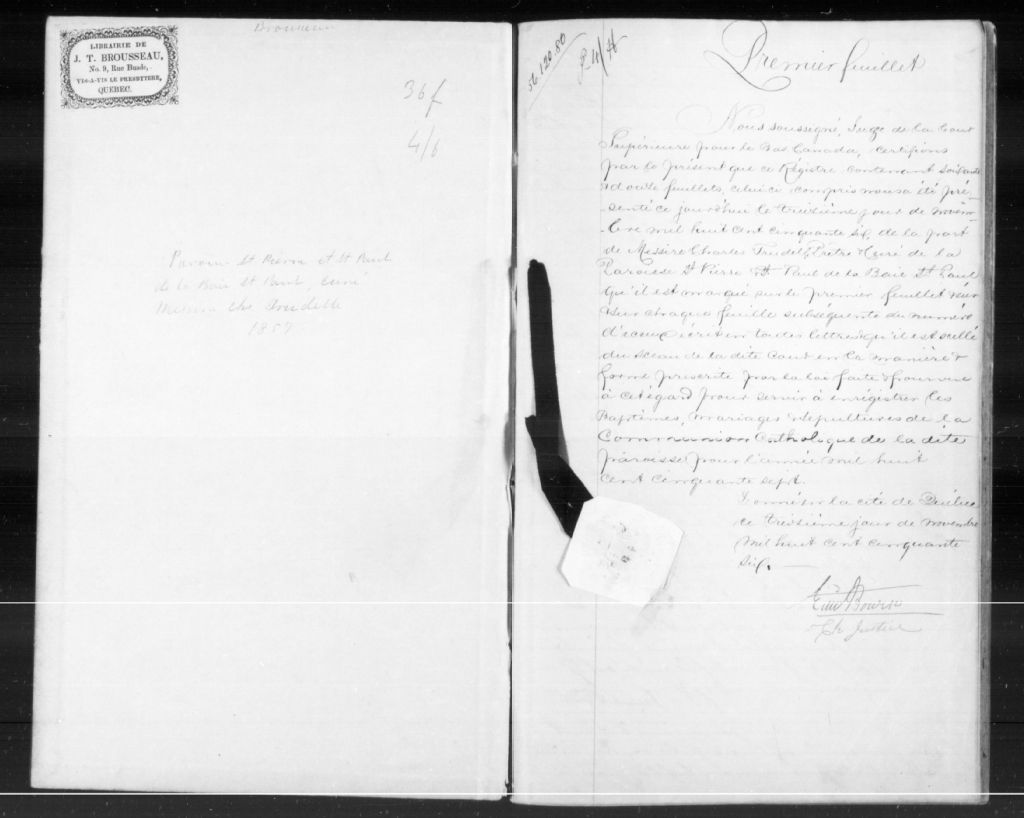 LIBRAIRIE DE
J. T. BROUSSEAU,
No. 9, Rue Buade,
VIS-A-VIS LE PRESBYTERE,
QUEBEC.
Brousseau
36 f
4/6
Paroisse St Pierre et St Paul
de la Baie St Paul,
Messire Chs Trudelle
1857
56.120.80
Premier feuillet
Nous soussigné, Juge de la Cour
Supérieure pour le Bas Canada, certifions
par le présent que ce Régistre contenant soixante
& douze feuillets, celui ci compris nous a été pré-
-senté ce jourd'hui le treizième jour de novem-
-bre mil huit cent cinquante six, de la part
de Messire Charles Trudel, Prêtre & Curé de la
Paroisse St Pierre & St Paul de la Baie St Paul
qu'il est marqué sur le premier feuillet &
sur chaque feuille subséquente du numéro
d'iceux écrit en toutes lettres qu'il est scellé
du sceau de la dite Cour en la manière &
forme prescrite par la loi faite & pourvue
à cet égard pour servir à enrégistrer les
Baptêmes, mariages & sépultures de la
Communion Catholique de la dite
paroisse pour l'année mil huit
cent cinquante sept.
Donné en la cité de Québec
ce treizième jour de novembre
mil huit cent cinquante
six. —
Ed Bowen
Ch Justice